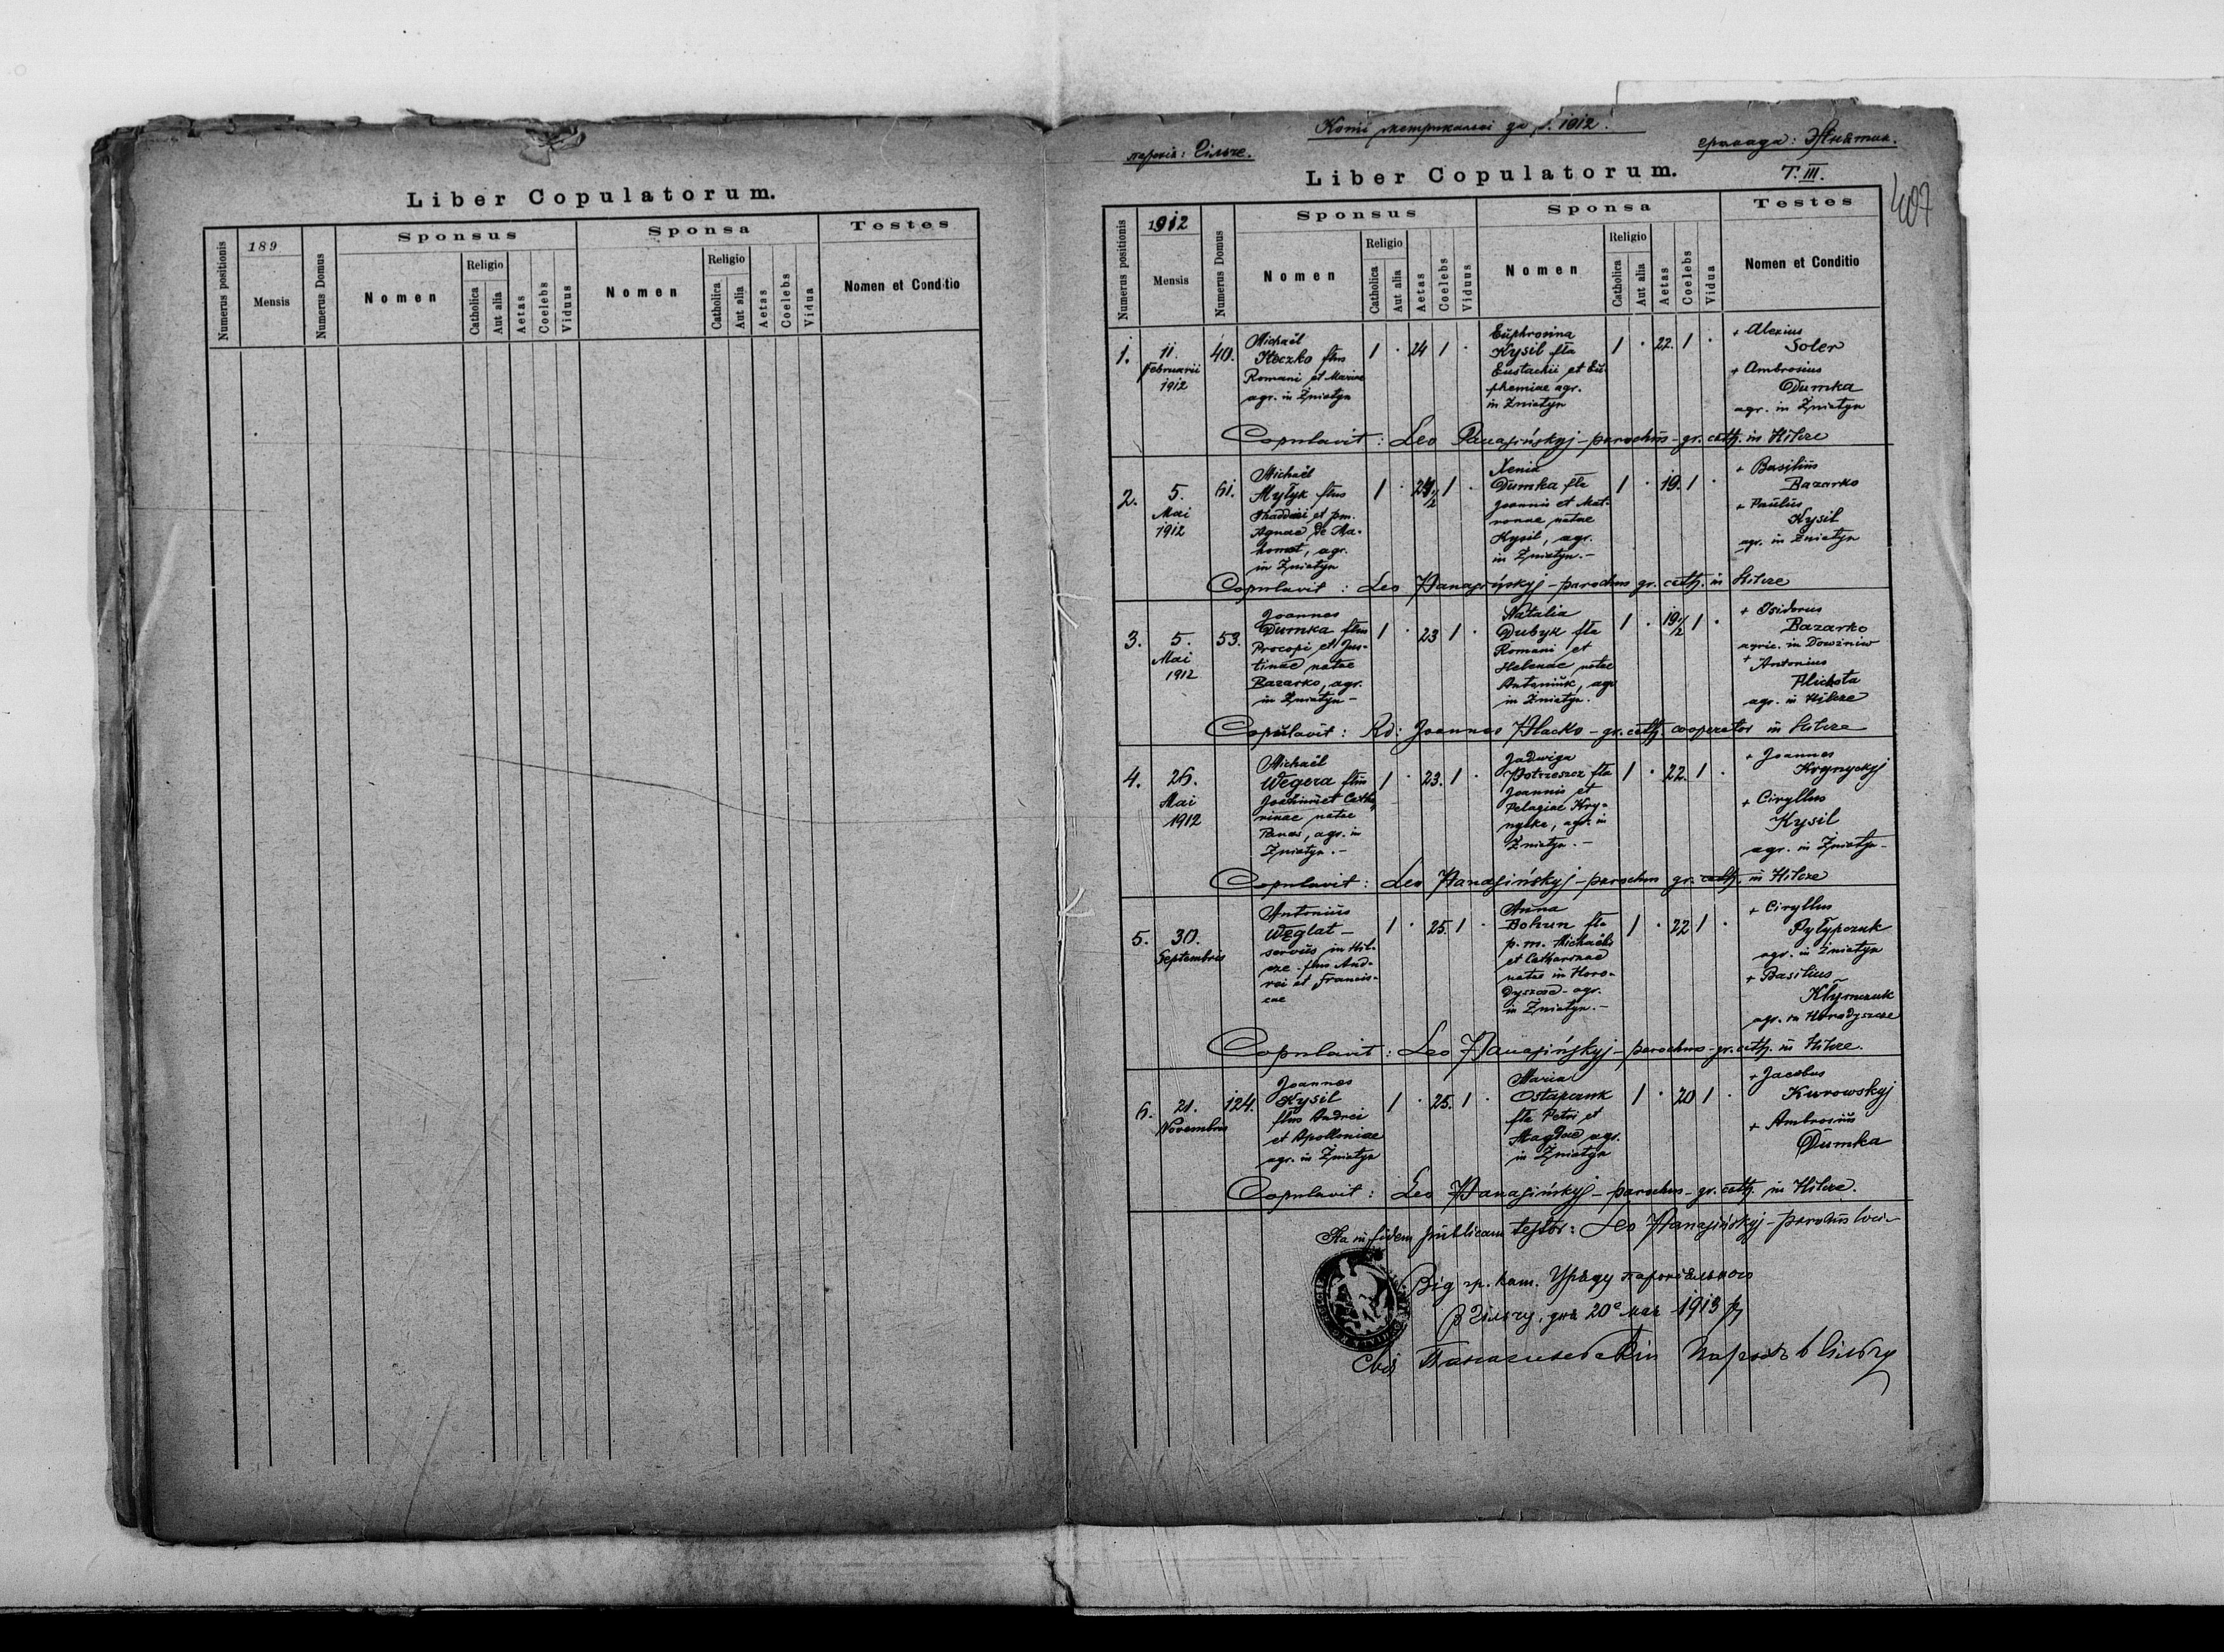 Liber Copulatorum.
Numerus positionis
189
Mensis
Numerus Domus
Sponsus
Nomen
Religio
Catholica
Aut alia
Aetas
Coelebs
Viduus
Sponsa
Nomen
Religio
Catholica
Aut alia
Aetas
Coelebs
Vidua
Testes
Nomen et Conditio
Копії метрикальні до р. 1912.
парохія: Гільче.
громада: Жнятин.
Liber Copulatorum.
T. III.
407
Numerus positionis
1912
Mensis
Numerus Domus
Sponsus
Nomen
Religio
Catholica
Aut alia
Aetas
Coelebs
Viduus
Sponsa
Nomen
Religio
Catholica
Aut alia
Aetas
Coelebs
Vidua
Testes
Nomen et Conditio
1.
11.
Februarii
1912
40.
Michaël
Heczko flius
Romani et Mariae
agr. in Żniatyn
1 · 24 1 ·
Euphrosina
Kysil fla
Eustachii et Eu-
phemiae agr.
in Żniatyn
1 · 22. 1 ·
+ Alexius
Soler
+ Ambrosius
Dumka
agr. in Żniatyn
Copulavit: Leo Panasińskyj - parochus - gr. cath. in Hilcze
2.
5.
Mai
1912
61.
Michaël
Mytyk flius
Thaddaei et pm.
Agnae de Ma-
homet, agr.
in Żniatyn
1 · 24 1/2 1 ·
Xenia
Dumka fla
Joannis et Mat-
ronae natae
Kysil, agr.
in Żniatyn. -
1 · 19. 1 ·
+ Basilius
Bazarko
+ Paulus
Kysil
agr. in Żniatyn
Copulavit: Leo Panasińskyj - parochus gr. cath. in Hilcze
3.
5.
Mai
1912
53.
Joannes
Dumka flius
Procopi et Jus-
tinae natae
Bazarko, agr.
in Żniatyn -
1 · 23 1 ·
Natalia
Dubyk fla
Romani et
Helenae natae
Antoniuk, agr
in Żniatyn.
1 · 19 1/2 1 ·
+ Isidorus
Bazarko
agric. in Dowżniow
+ Antonius
Plichota
agr. in Hilcze
Copulavit: Rd: Joannes Hlacko - gr. cath. cooperator in Hilcze
4.
26.
Mai
1912
Michaël
Wegera flius
Joachimi et Catha-
rinae natae
Panas, agr. in
Żniatyn. -
1 · 23. 1 ·
Jadwiga
Potrzeszcz fla
Joannis et
Pelagiae Kry-
nyćka, agr. in
Żniatyn. -
1 · 22. 1 ·
+ Joannes
Krynyckyj
+ Ciryllus
Kysil
agr. in Żniatyn -
Copulavit: Leo Panasińskyj - parochus gr. cath. in Hilcze
5.
30.
Septembris
Antonius
Węglat -
servus in Hil-
cze - flius And-
rei et Francis-
cae
1 · 25. 1 ·
Anna
Bohun fla
p. m. Michaëlis
et Catharinae
natae in Horo-
dyszcze - agr.
in Żniatyn. -
1 · 22 1 ·
+ Ciryllus
Pyłypczuk
agr. in Żniatyn
+ Basilius
Kłymczuk
agr. in Horodyszcze
Copulavit: Leo Panasińskyj - parochus - gr. cath. in Hilcze.
6.
21.
Novembris
124.
Joannes
Kysil
flius Andrei
et Apolloniae
agr. in Żniatyn
1 · 25. 1 ·
Maria
Ostapczuk
fla Petri et
Magdae agr.
in Żniatyn
1 · 20 1 ·
+ Jacobus
Kurowskyj
+ Ambrosius
Dumka
Copulavit: Leo Panasińskyj - parochus - gr. cath. in Hilcze.
Ita in fidem publicam testor: Leo Panasińskyj - parochus loci -
Від гр. кат. Уряду парохіального
в Гільчу, дня 20 мая 1913 р
Лев Панасинський парох в Гільчу